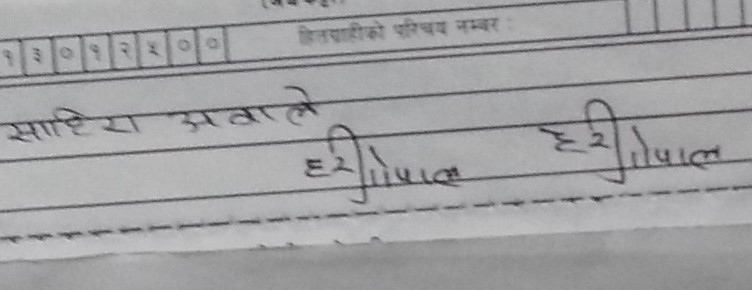 १३०१२५०० हितग्राहीको परिचय नम्बर :
साहिरा अवाले
हरीगोपाल हरीगोपाल